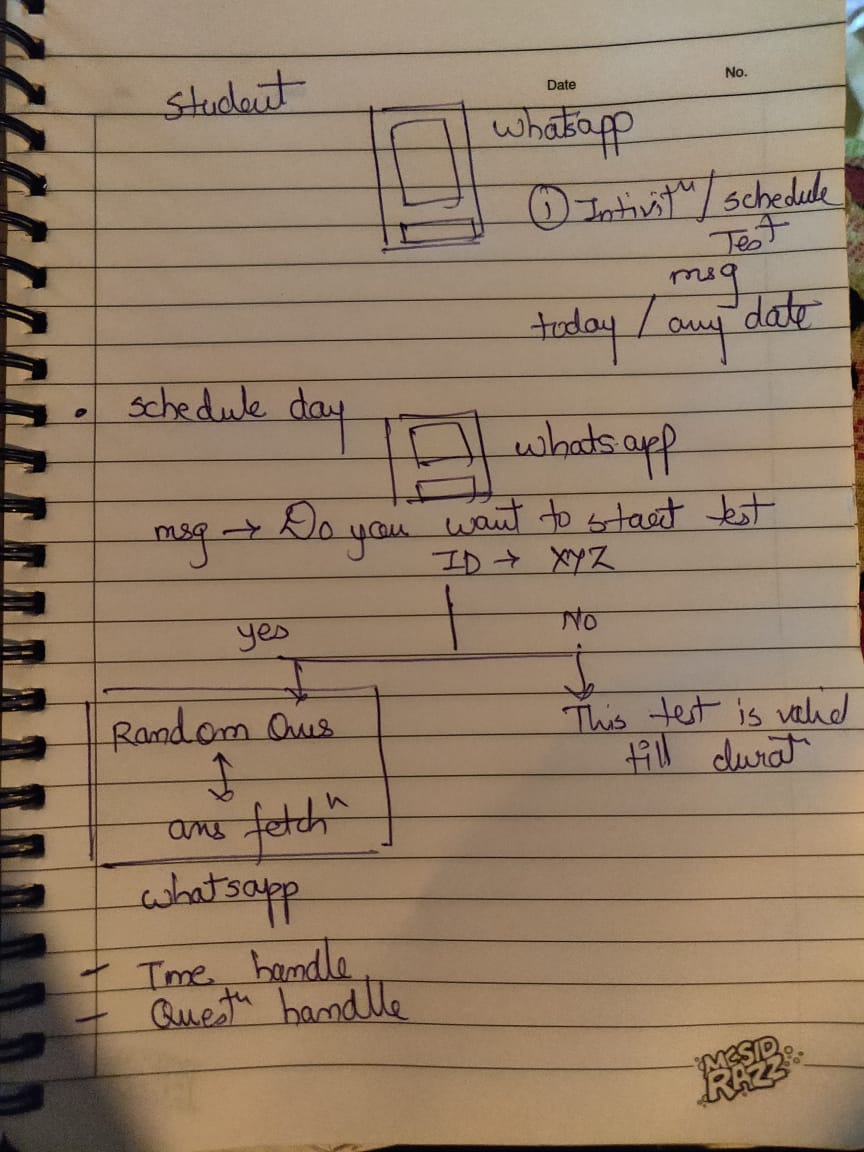 Date
No.
Student
whatsapp
① Intivitⁿ / schedule
Test
msg
today / any date
• schedule day
whatsapp
msg → Do you want to start test
ID → XYZ
yes
No
Random Ques
This test is valid
till duratⁿ
ans fetchⁿ
whatsapp
- Tme handle
- Questⁿ handlle
MCSID
RAZZ